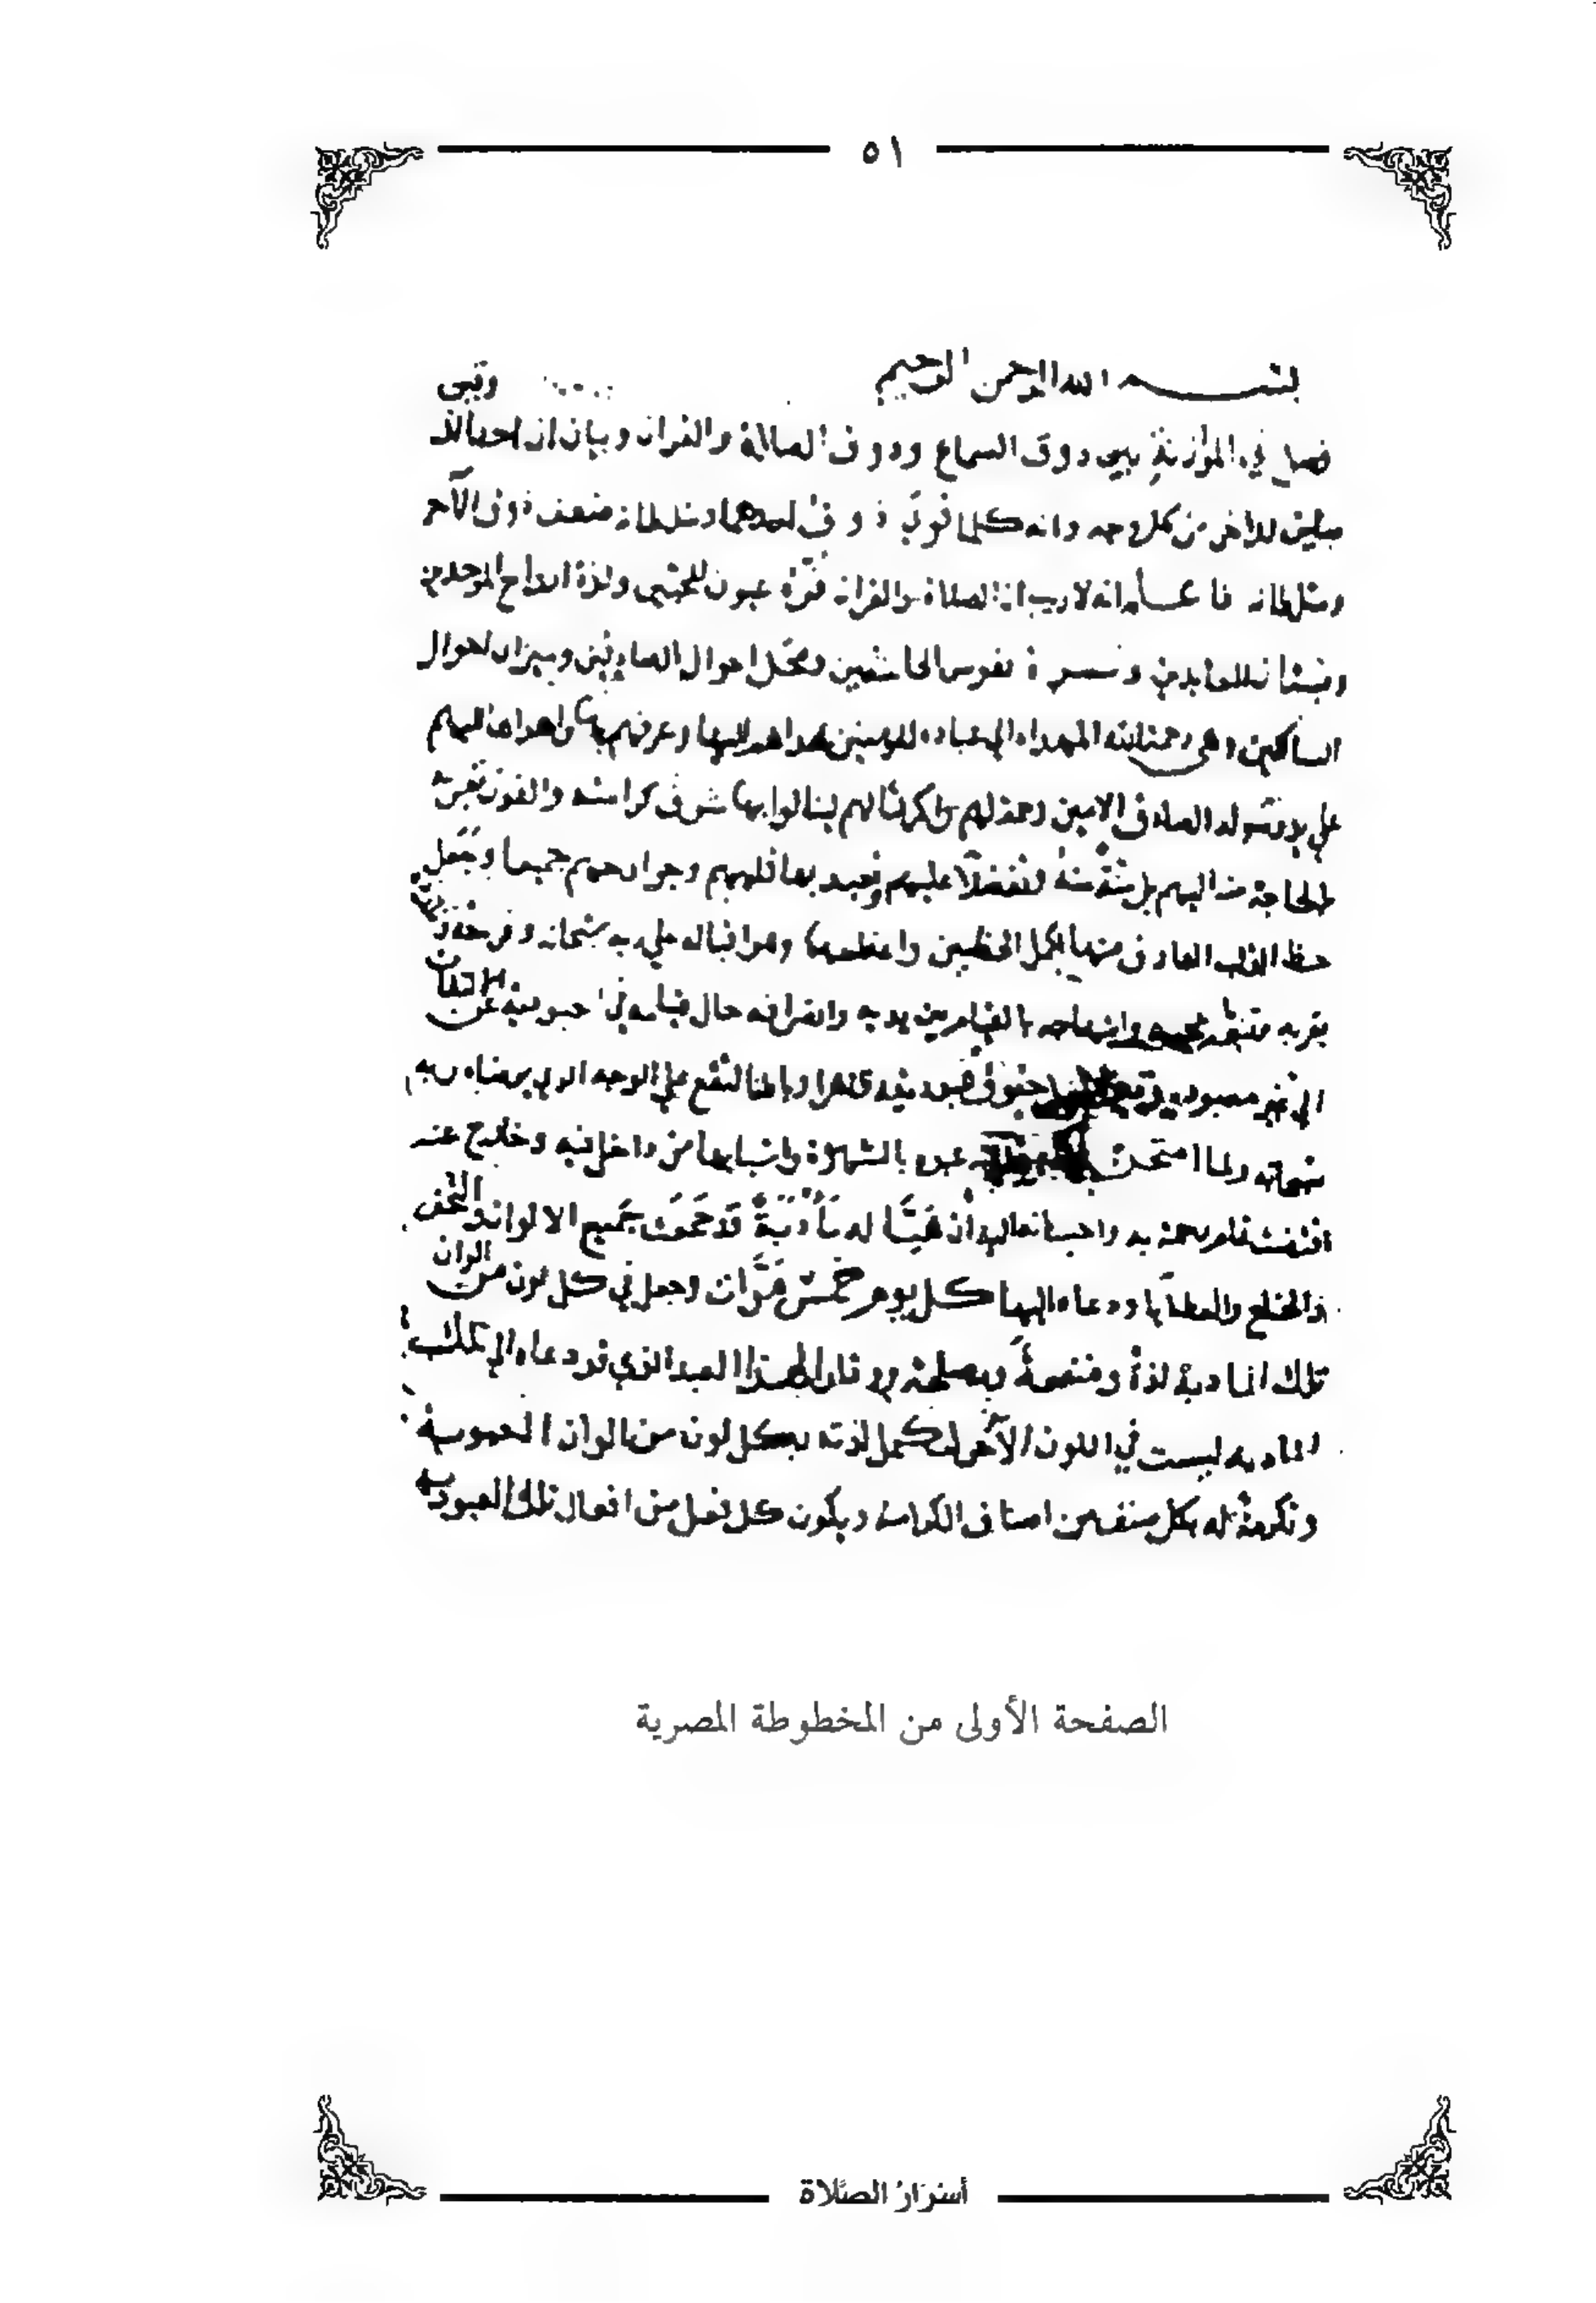 ٥١
بسم الله الرحمن الرحيم
فصل في الموازنة بين ذوق السماع وذوق الصلاة والقران وبيان ان احدالذ
مباين للاخر من كل وجه وانه كلما قوي ذوق احدهما وسلطانه ضعف ذوق الآخر
وسلطانه فاعلم انه لا ريب ان الصلاة والقران قرة عيون المحبين ولذة ارواح الموحدين
وبستان العابدين ونفوس الخاشعين ومحك احوال الصادقين وميزان احوال
السالكين وهي رحمة الله المهداه الي عباده المومنين هداهم اليها وعرفهم بها واهداها اليهم
علي يد رسوله الصادق الامين رحمة لهم واكراما لهم لينالوا بها شرف كرامته والفوز بقربه
لا لحاجة منه اليهم بل منة منه وتفضلا عليهم وتعبد بها قلوبهم وجوارحهم جميعا وجعل
حظ القلب العارف منها اكمل الحظين واعظمهما وهو اقباله علي ربه سبحانه وفرحه
بقربه وتنعمه بحبه وابتهاجه بالقيام بين يديه وانصرافه حال قيامه في عبوديته عن الالتفات
الي غير معبوده حقوق عبوديته ظاهرا وباطنا لتقع علي الوجه الذي يرضاه ربه
سبحانه ولما امتحن عبده بالشهوة واسبابها من داخل فيه وخارج عنه
اقتضت تمام رحمته به واحسانه اليه أن هيأ له مأدبة قد جمعت جميع الالوان والتحف
والخلع والعطايا ودعاه اليها كل يوم خمس مرات وجعل في كل لون من الوان
تلك المادبة لذة ومنفعة ومصلحة ووقار لهذا العبد الذي قد دعاه الي تلك
المادبه ليست في اللون الآخر لتكمل لذته بكل لون من الوان العبوديه
وتكرمة له بكل صنف من اصناف الكرامه ويكون كل فعل من افعال تلك العبوديه
الصفحة الأولى من المخطوطة المصرية
أسرار الصلاة